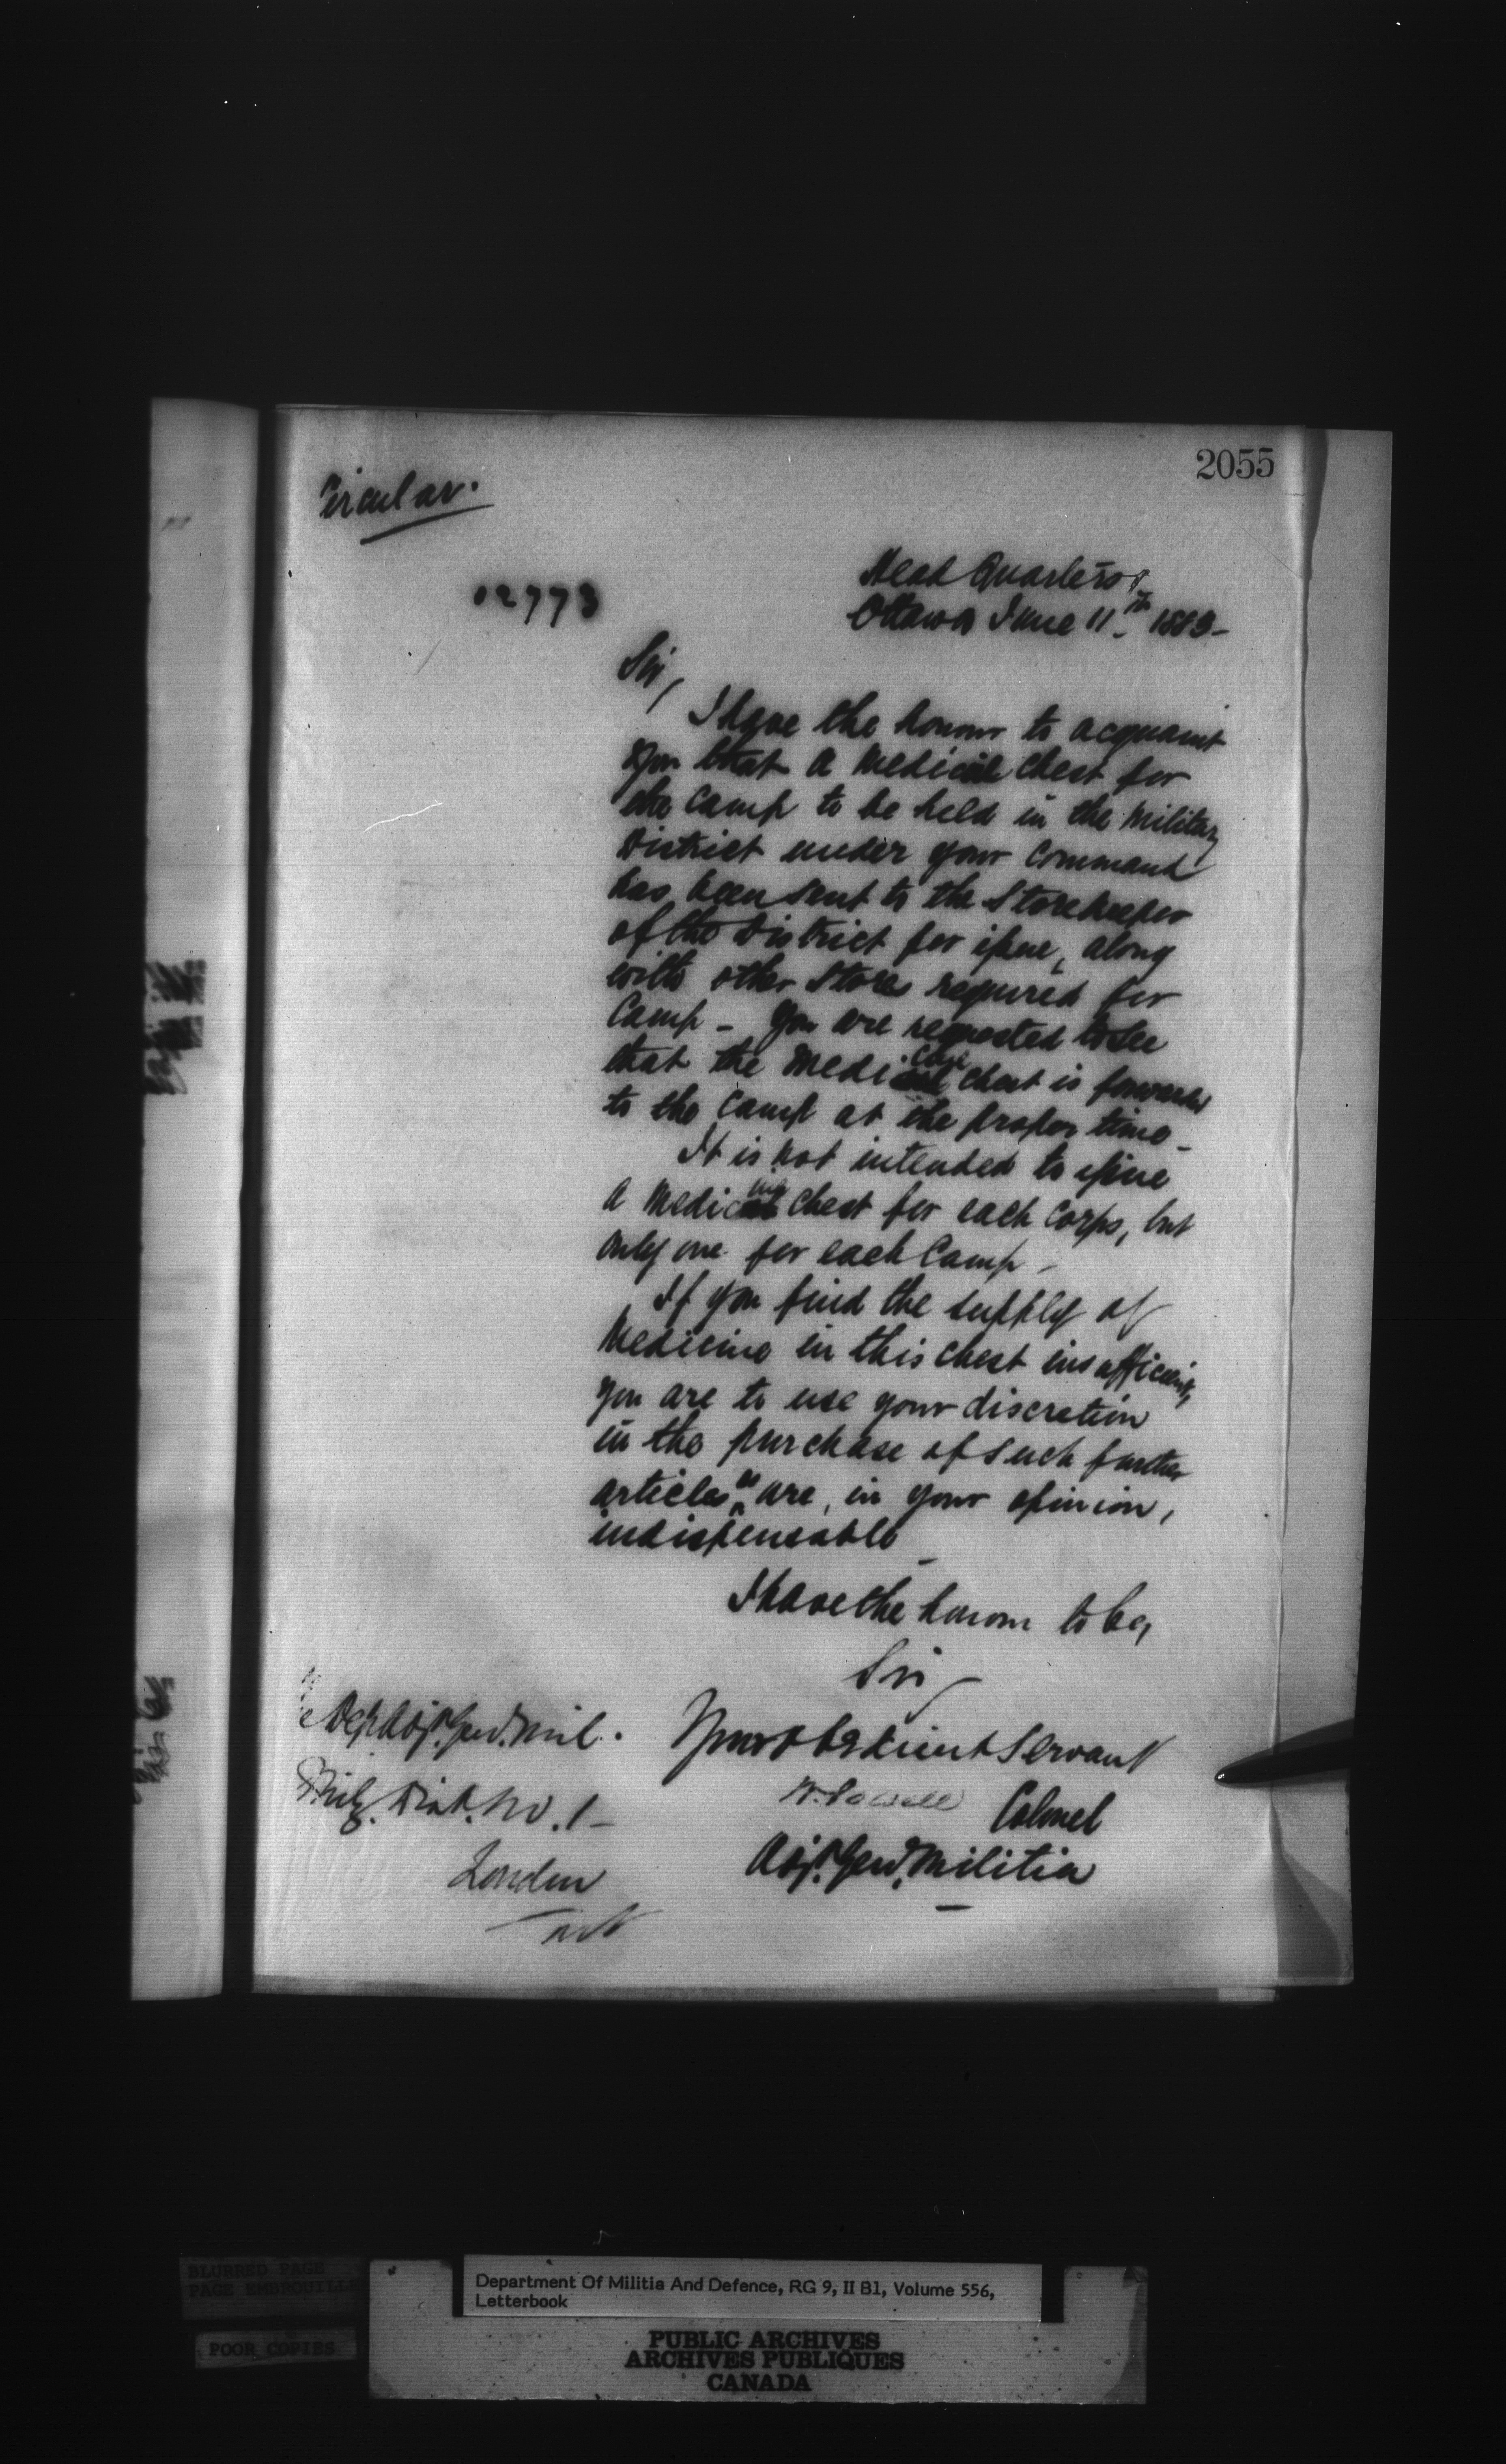 2055
Circular.
Head Quarters,
02773
Ottawa June 11th 1883-
Sir,
I have the honour to acquaint
you that a medical chest for
the Camp to be held in the Military
District under your Command
has been sent to the Storekeeper
of the District for issue, along
with other Stores required for
Camp - You are requested to see
that the medicine chest is forwarded
to the Camp at the proper time -
It is not intended to issue
a medicine chest for each Corps, but
only one for each Camp -
If you find the supply of
Medicine in this chest insufficient,
you are to use your discretion
in the purchase of such further
articles as are, in your opinion,
indispensable -
I have the honour to be,
Sir
Your Obedient Servant
W. Powell Colonel
Adjt. Genl. Militia
Dep. Adjt. Genl. Mil.
Mily. Dist. No. 1 -
London
Ont
BLURRED PAGE
PAGE EMBROUILLE
POOR COPIES
Department Of Militia And Defence, RG 9, II B1, Volume 556,
Letterbook
PUBLIC ARCHIVES
ARCHIVES PUBLIQUES
CANADA